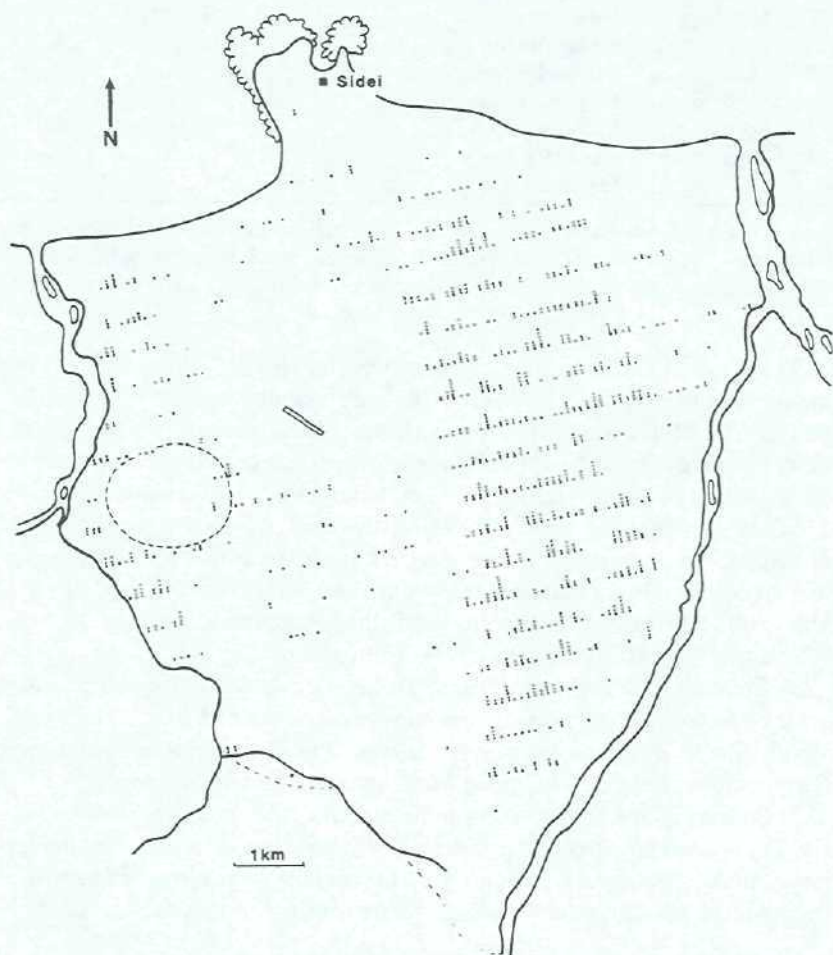 Sidei
N
1km